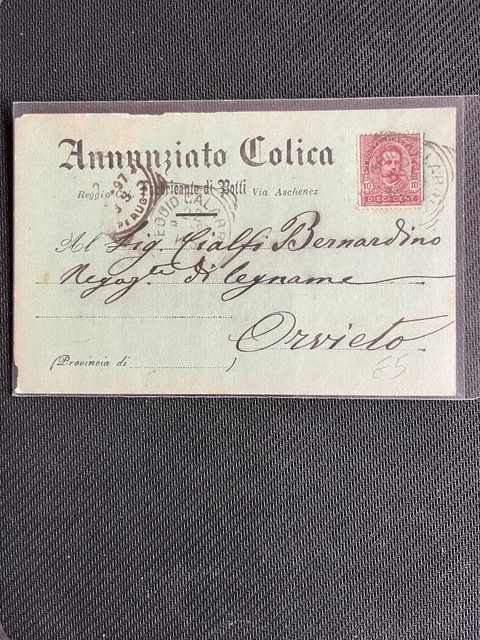 Annunziato Colica
Fabbricante di Botti
Reggio Cal. Via Aschenez
Al Sig. Cialfi Bernardino
Negozte di legname
Orvieto
(Provincia di )
10 10
DIECI CENT.
REGGIO CALABR
97
PERUGIA
65